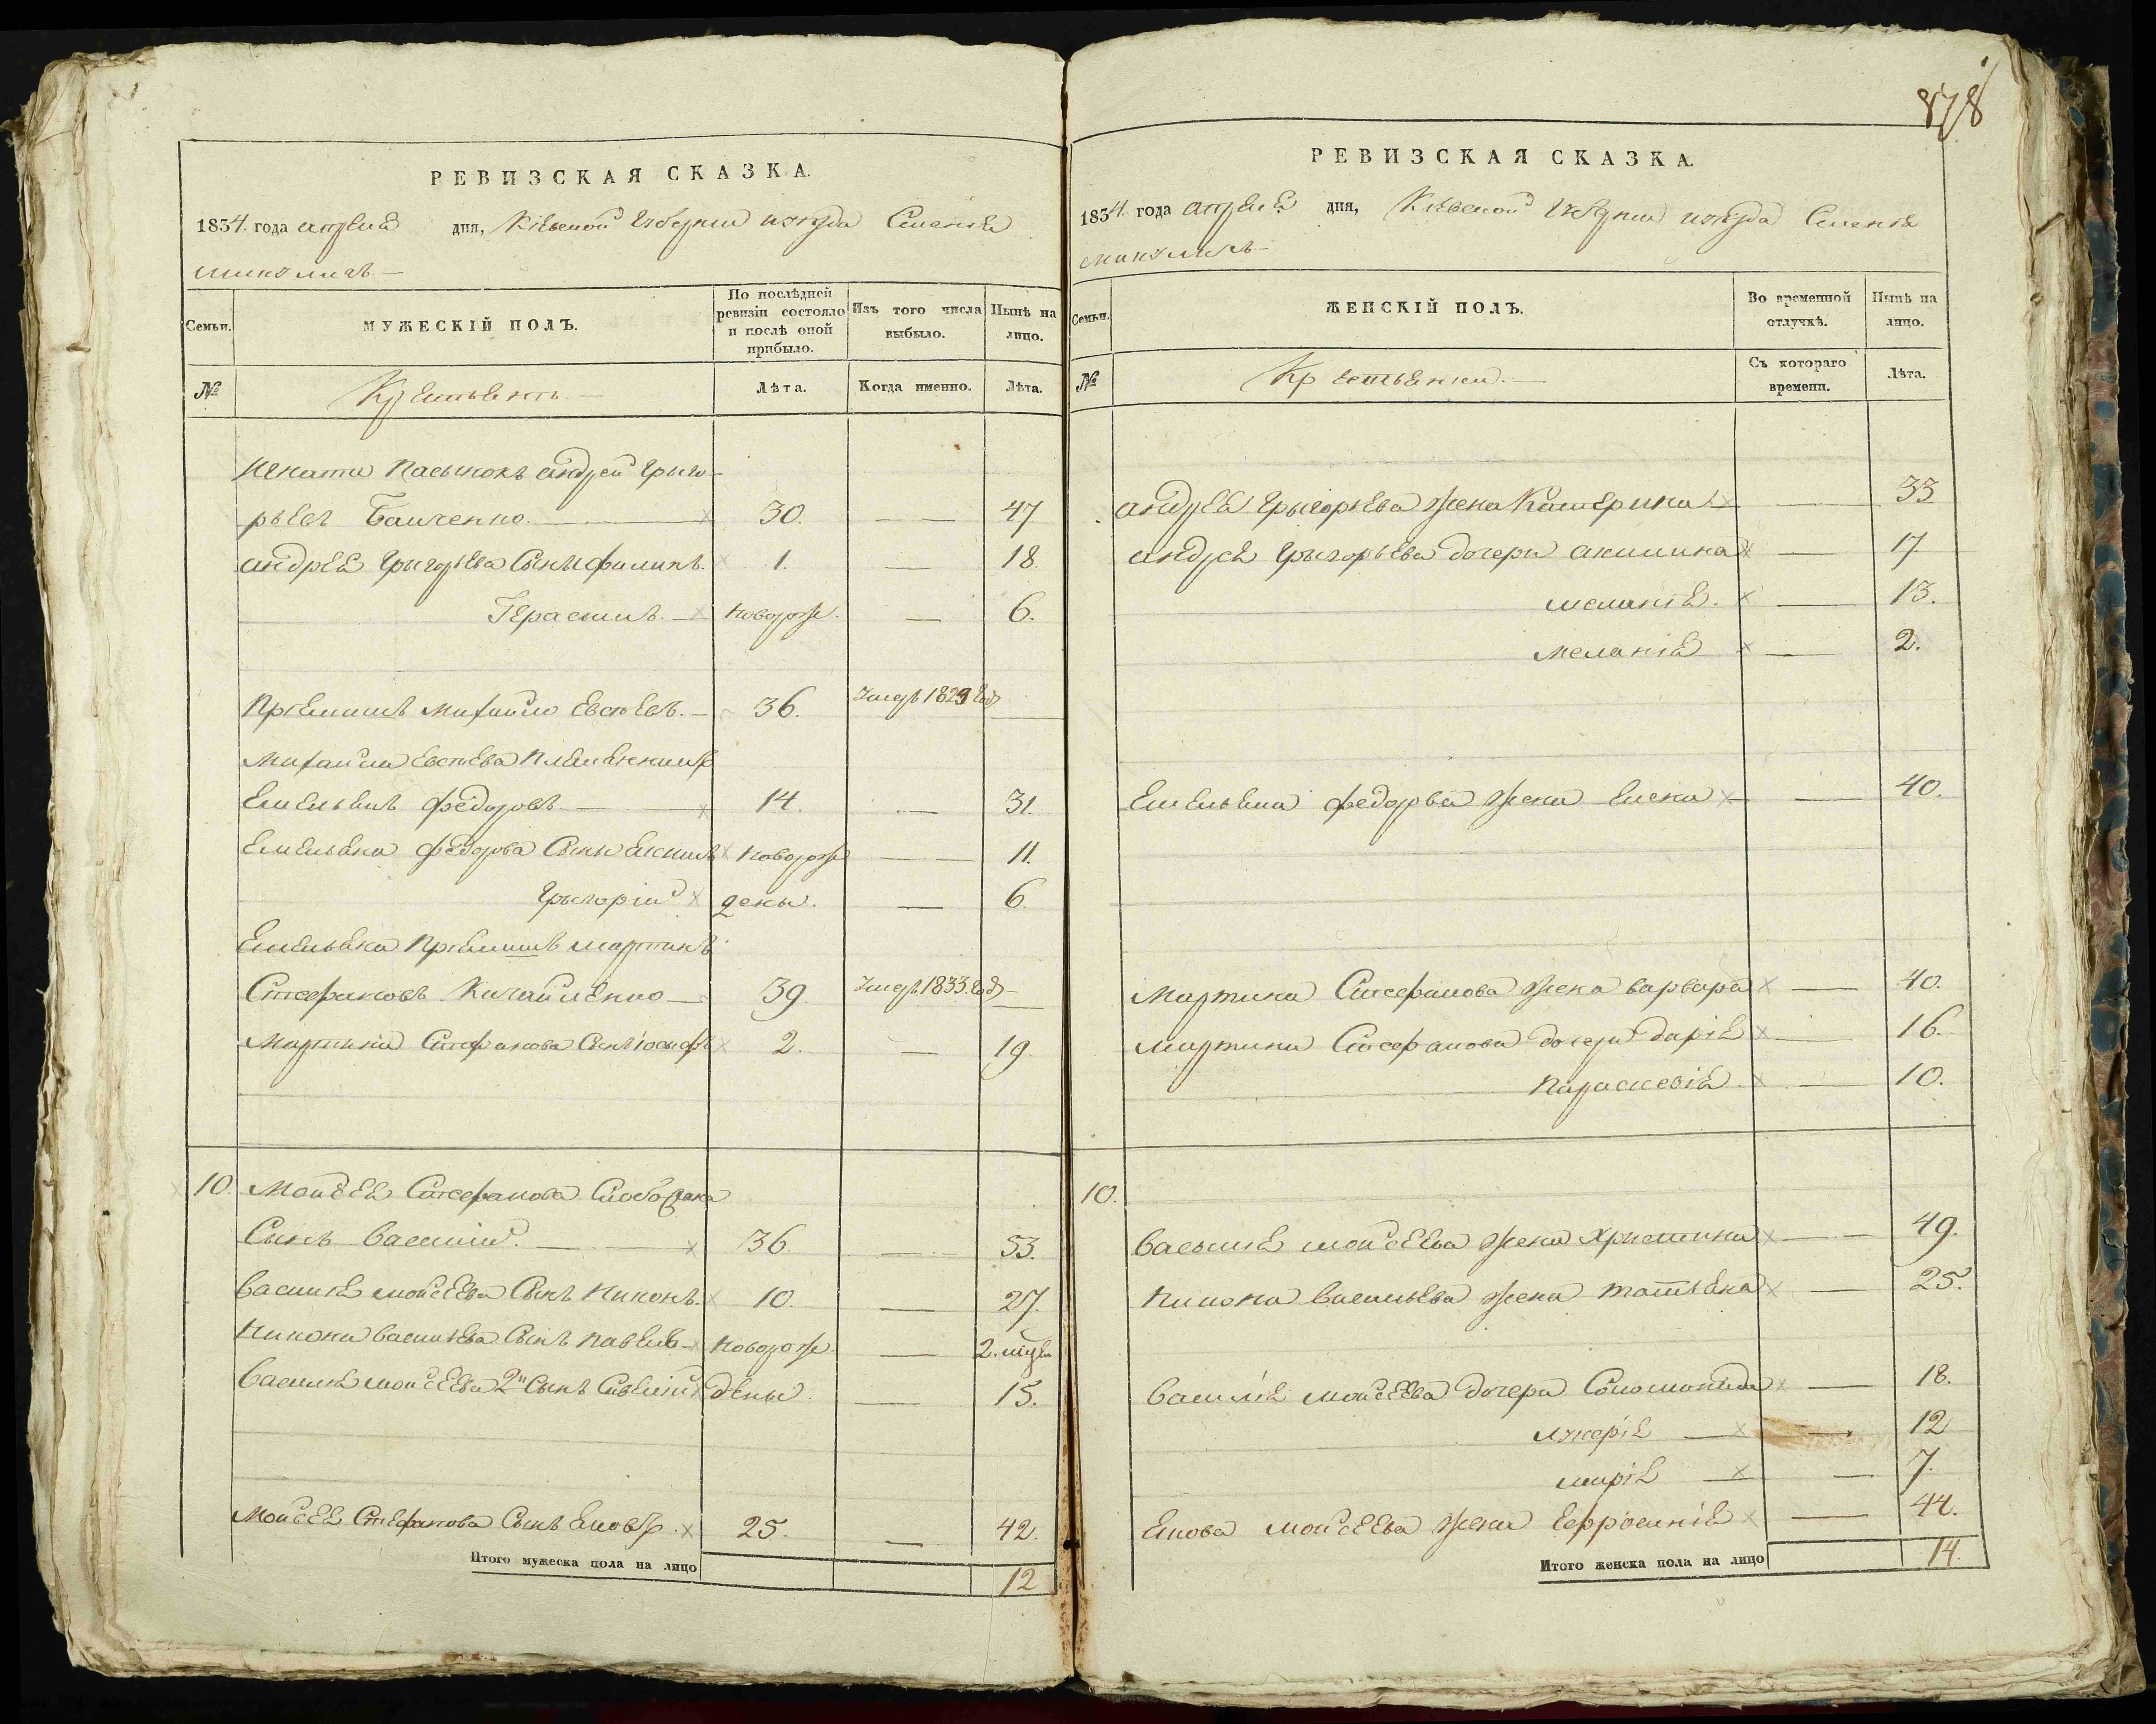 878
РЕВИЗСКАЯ СКАЗКА.
1834 года апреля дня, Кіевской Губерніи уезда Селенія
Миколич
Семьи.
МУЖЕСКІЙ ПОЛЪ.
По послѣдней ревизіи состояло и послѣ оной прибыло.
Изъ того числа выбыло.
Нынѣ на лицо.
№
Крестьянъ.
Лѣта.
Когда именно.
Лѣта.
пасынокъ андрей Грыго-
рьевъ 30. — 47
андрея Грыгорьева Сынъ филипъ. 1. — 18.
Герасимъ. новорож. — 6.
Пріемишъ михайло Евсѣевъ. 36. умеръ 1829 год
михайла Евсѣева племянникъ
Емельянъ федоровъ 14. — 31.
Емельяна федорова Сыны новорож — 11.
Грыгорій дены. — 6.
Емельяна Пріемишъ мартинъ
Стефановъ 39 умеръ 1833 год
Мартина Стефанова Сынъ іосифъ 2. — 19.
10. Мойсея Стефанова
Сынъ Василий. 36. — 53.
Василія мойсеева Сынъ Никонъ. 10. — 27.
Никона васильева Сынъ павелъ новорож — 2. мѣся
Василія мойсеева 2й Сынъ дены. — 15.
Мойсея Стефанова Сынъ Яковъ. 25. — 42.
Итого мужеска пола на лицо 12
РЕВИЗСКАЯ СКАЗКА.
1834 года апреля дня, Кіевской Губерніи уезда Селенія
Миколич
Семьи.
ЖЕНСКІЙ ПОЛЪ.
Во временной отлучкѣ.
Нынѣ на лицо.
№
Крестьянки.
Съ котораго времени.
Лѣта.
андрея Грыгорьева жена Катерина — 33
андрея Грыгорьева дочери акилина — 17
меланія. — 13.
меланія — 2.
Емельяна федорова жена Елена — 40.
Мартина Стефанова жена варвара — 40.
Мартина Стефанова дочери дарія — 16.
параскевія — 10.
10.
Василія мойсеева жена Христина — 49.
Никона васильева жена татьяна — 25.
Василія мойсеева дочери Соломонида — 18.
лукерія — 12
марія — 7.
Якова мойсеева жена Ефросинія — 44.
Итого женска пола на лицо 14.